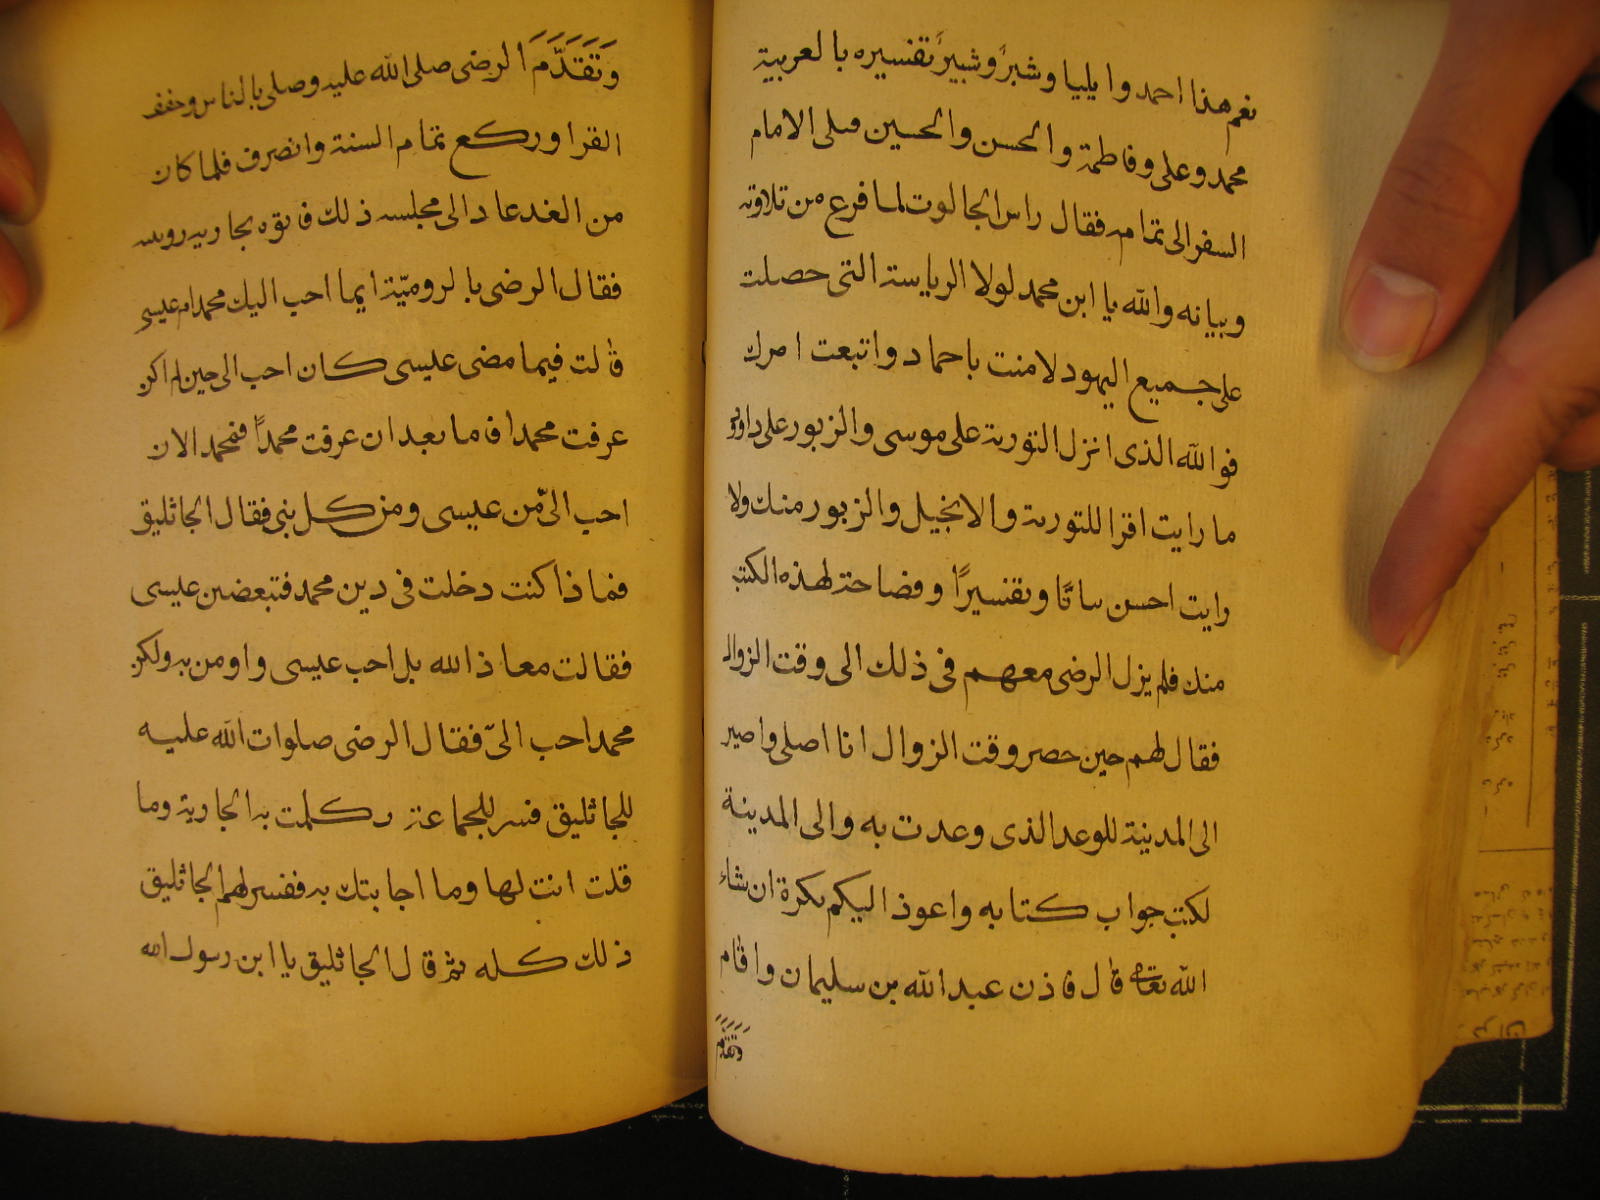 نعم هذا احمد وايليا وشبر وشبير تفسيره بالعربية
محمد وعلى وفاطمة والحسن والحسين فتلى الامام
السفر الى تمامه فقال راس الجالوت لما فرغ من تلاوته
وبيانه والله يا ابن محمد لولا الرياسة التى حصلت
على جميع اليهود لامنت باحماد واتبعت امرك
فوالله الذى انزل التورية على موسى والزبور على داود
ما رايت اقرا للتورية والانجيل والزبور منك ولا
رايت احسن بيانا وتفسيرًا وفصاحة لهذه الكتب
منك فلم يزل الرضى معهم فى ذلك الى وقت الزوال
فقال لهم حين حضر وقت الزوال انا اصلى واصير
الى المدينة للوعد الذى وعدت به والى المدينة
لكتب جواب كتابه واعود اليكم بكرة ان شاء
الله تعالى قال فاذن عبد الله بن سليمان واقام
وَتَقَدَّمَ
وَتَقَدَّمَ الرضى صلى الله عليه وصلى بالناس وخفف
القرا وركع تمام السنة وانصرف فلما كان
من الغد عاد الى مجلسه ذلك فاتوه بجارية روميه
فقال الرضى بالروميّة ايما احب اليك محمد ام عيسى
قالت فيما مضى عيسى كان احب الى حين لم اكن
عرفت محمدا فاما بعد ان عرفت محمدًا فمحمد الان
احب الىّ من عيسى ومن كل نبى فقال الجاثليق
فماذا كنت دخلت فى دين محمد فتبغضين عيسى
فقالت معاذ الله بل احب عيسى واومن به ولكن
محمد احب الىّ فقال الرضى صلوات الله عليه
للجاثليق فسر للجماعة كلمت به الجارية وما
قلت انت لها وما اجابتك به ففسر لهم الجاثليق
ذلك كله ثم قال الجاثليق يا ابن رسول الله